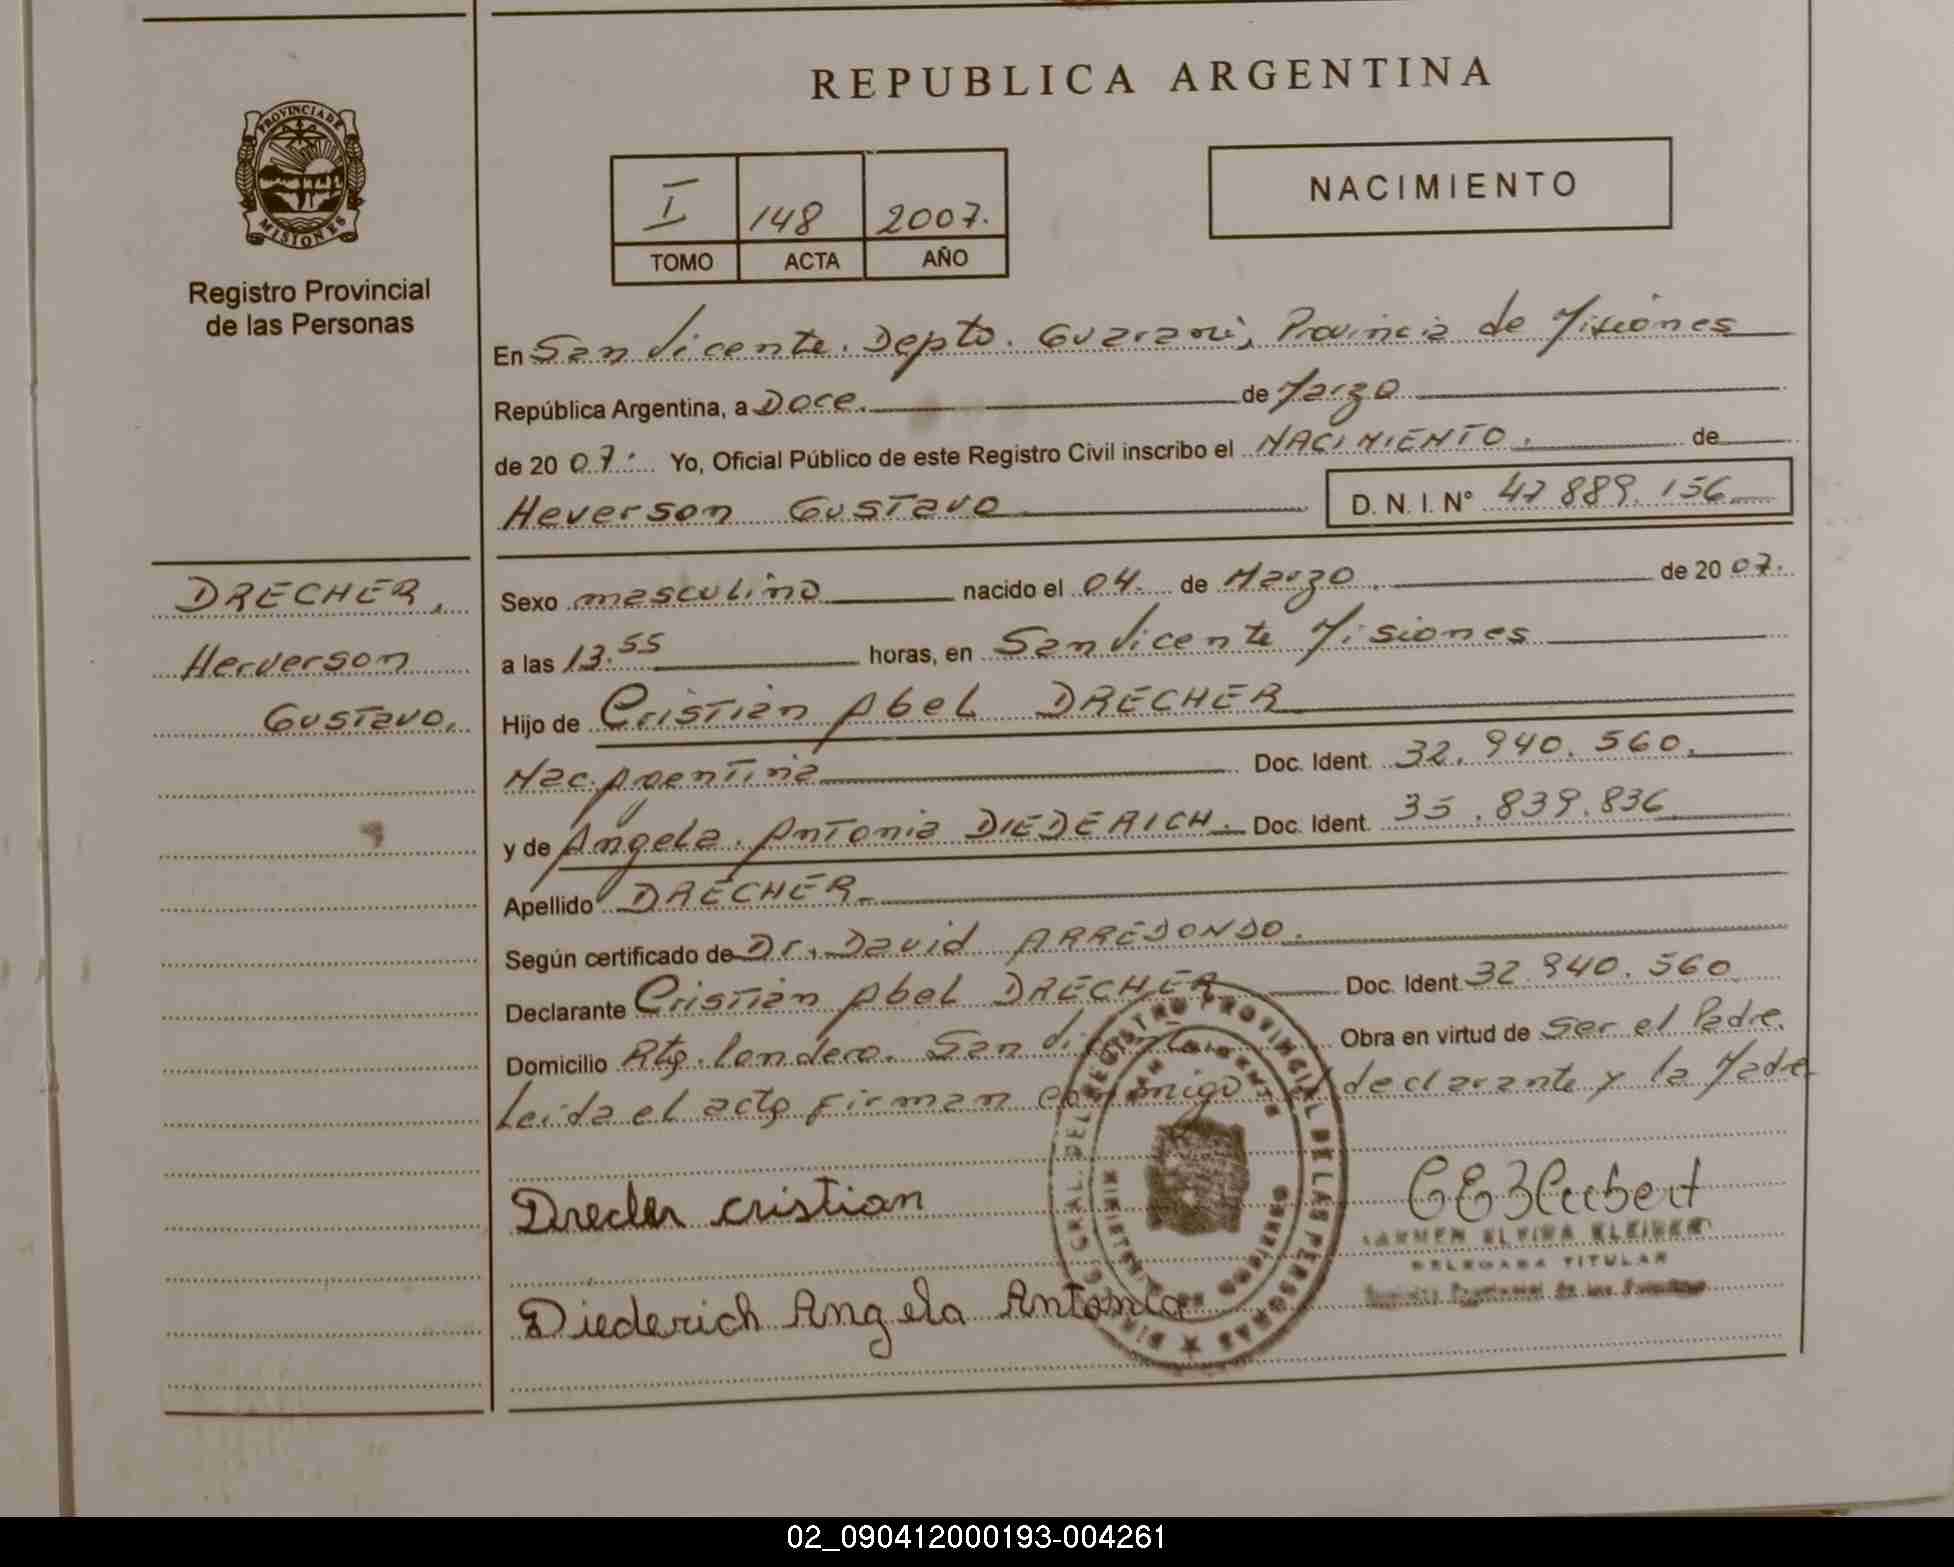 REPUBLICA ARGENTINA
PROVINCIA DE
MISIONES
Registro Provincial
de las Personas
I 148 2007.
TOMO ACTA AÑO
NACIMIENTO
En San Vicente. Depto. Guaraní, Provincia de Misiones
República Argentina, a Doce. de Marzo
de 20 07. Yo, Oficial Público de este Registro Civil inscribo el NACIMIENTO. de
Heverson Gustavo D. N. I. N° 47 889. 156
DRECHER,
Herverson
Gustavo.
Sexo masculino nacido el 04. de Marzo. de 20 07.
a las 13.55 horas, en San Vicente Misiones
Hijo de Cristian Abel DRECHER
Nac. Argentina Doc. Ident. 32. 940. 560.
y de Angela. Antonia DIEDERICH. Doc. Ident. 35. 839. 836
Apellido DRECHER
Según certificado de Dr. David ARREDONDO.
Declarante Cristian Abel DRECHER Doc. Ident. 32. 940. 560
Domicilio Londero. San Vicente Obra en virtud de Ser el Padre.
Leida el acta firman conmigo el declarante y la Madre
Drecher cristian
Diederich Angela Antonia
DEL REGISTRO PROVINCIAL DE LAS PERSONAS
SAN VICENTE
CARMEN ELVIRA
DELEGADA TITULAR
Registro Provincial de las Personas
02_090412000193-004261